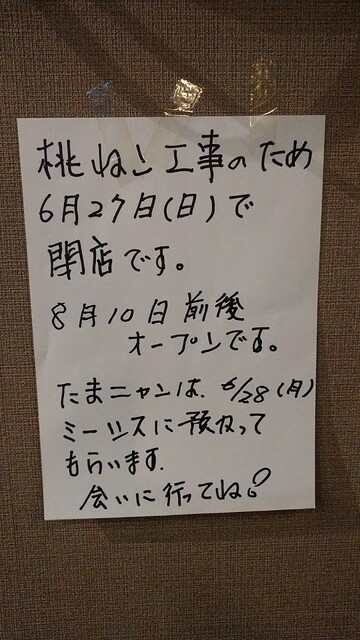 桃ねこ工事のため
6月27日(日)で
閉店です。
8月10日前後
オープンです。
たまニャンは、6/28(月)
ミーシスに預かって
もらいます。
会いに行ってね!